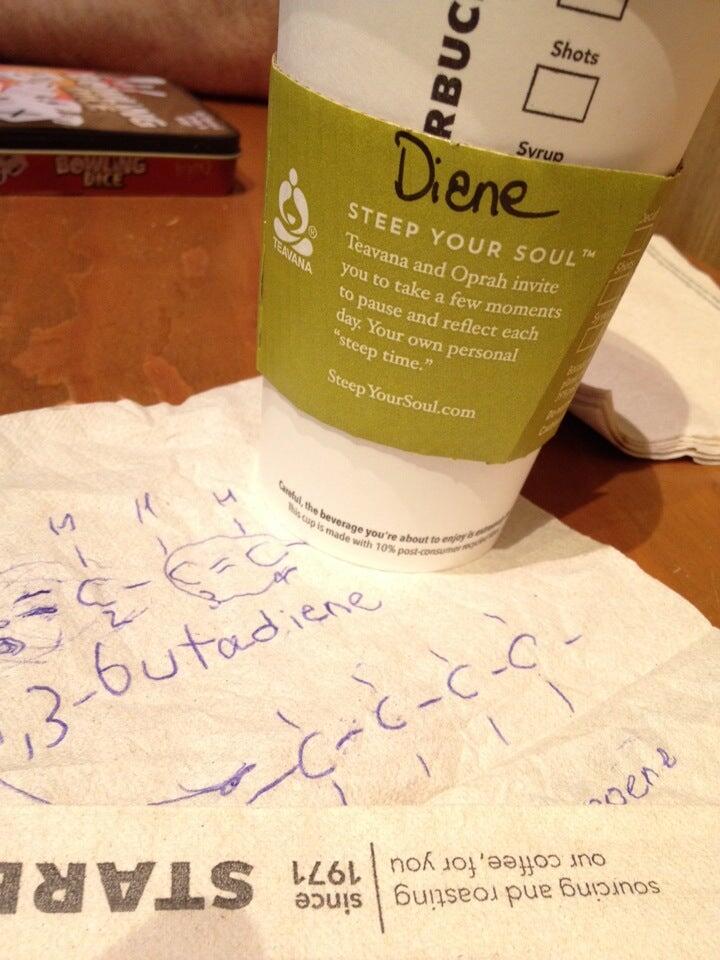 Shots
Syrup
Diene
STEEP YOUR SOUL™
Teavana and Oprah invite
you to take a few moments
to pause and reflect each
day. Your own personal
"steep time."
SteepYourSoul.com
TEAVANA®
BOWLING
DICE
Careful, the beverage you're about to enjoy is
This cup is made with 10% post-consumer recycled
H H H
= C - C = C -
2 4
,3-butadiene
C - C - C - C -
since
1971
sourcing and roasting
our coffee, for you